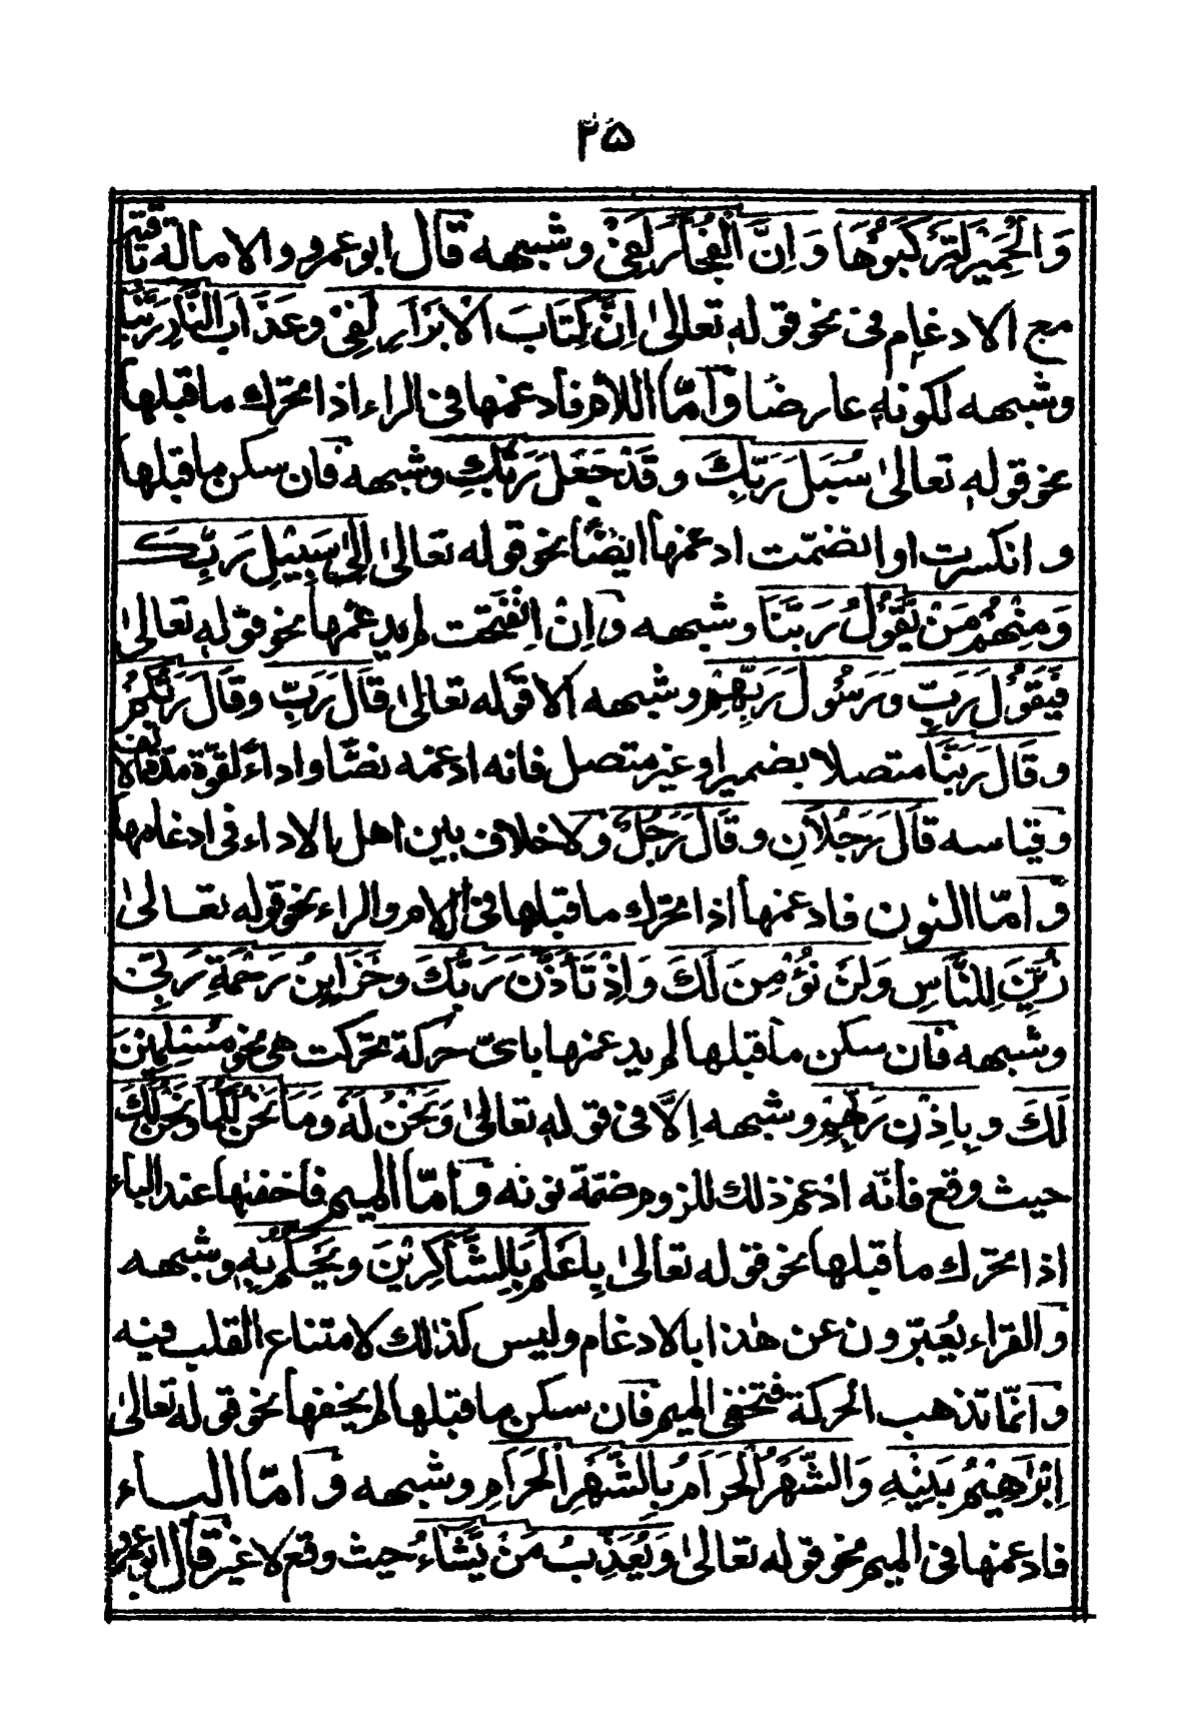 ٢٥
وَالْحَمِيْرَ لِتَرْكَبُوْهَا وَاِنَّ الْفُجَّارَ لَفِىْ وشبهه قال ابو عمرو والامالة باقية
مع الادغام فى نحو قوله تعالىٰ اِنَّ كِتَابَ الْاَبْرَارِ لَفِىْ وعَذَابَ النَّارِ رَبَّنَا
وشبهه لكونه عارضا وَاَمَّا اللام فأدغمها فى الراء اذا تحرّك ما قبلها
نحو قوله تعالىٰ سُبُلَ رَبِّكِ وقَدْ جَعَلَ رَبُّكِ وشبهه فان سكن ما قبلها
وانكسرت او انضمّت ادغمها ايضًا نحو قوله تعالىٰ اِلىٰ سَبِيْلِ رَبِّكَ
وَمِنْهُمْ مَنْ يَّقُوْلُ رَبَّنَا وشبهه وَاِنْ انْفَتَحَت لم يدغمها نحو قوله تعالىٰ
فَيَقُوْلَ رَبِّ وَرَسُوْلَ رَبِّهِمْ وشبهه الا قوله تعالىٰ قَالَ رَبِّ وقَالَ رَبُّكُمْ
وقَالَ رَبُّنَا متصلا بضمير او غير متصل فانه ادغمه نصًّا واداءً لقوة مدّة الالف
وقياسه قَالَ رَجُلَانِ وقَالَ رَجُلٌ وَلاخلاف بين اهل الاداء فى ادغامها
وَامّا النون فادغمها اذا تحرّك ما قبلها فى اللام والراء نحو قوله تعالىٰ
زُيِّنَ لِلنَّاسِ وَلَنْ نُؤْمِنَ لَكَ وَاِذْ تَاَذَّنَ رَبُّكَ وخَزَايِنُ رَحْمَةِ رَبِّىْ
وشبهه فان سكن ما قبلها لم يدغمها باىّ حركة تحرّكت هى نحو مُسْلِمَيْنِ
لَكَ وبِاِذْنِ رَبِّهِمْ وشبهه اِلَّا فى قوله تعالىٰ وَنَحْنُ لَهُ وَمَا نَحْنُ لَكُمَا ونَحْنُ لَكَ
حيث وقع فانّه ادغم ذلك للزوم ضمّة نونه وَاَمّا الميم فأخفٰها عند الباء
اذا تحرّك ما قبلها نحو قوله تعالىٰ بِاَعْلَمَ بِالشّٰكِرِيْنَ ويَحْكُمُ بِهٖ وشبهه
والقراء يُعَبِّرون عن هٰذا بالادغام وليس كذٰلك لامتناع القلب فيه
وَانمّا تذهب الحركة فتخفى الميم فان سكن ما قبلها لم يخفها نحو قوله تعالىٰ
اِبْرَاهِيْمُ بَنِيْهِ وَالشَّهْرُ الْحَرَامُ بِالشَّهْرِ الْحَرَامِ وشبهه وَامّا البـاء
فادغمها فى الميم نحو قوله تعالىٰ وَيُعَذِّبُ مَنْ يَّشَاءُ حيث وقع لا غير قال ابو عمرو